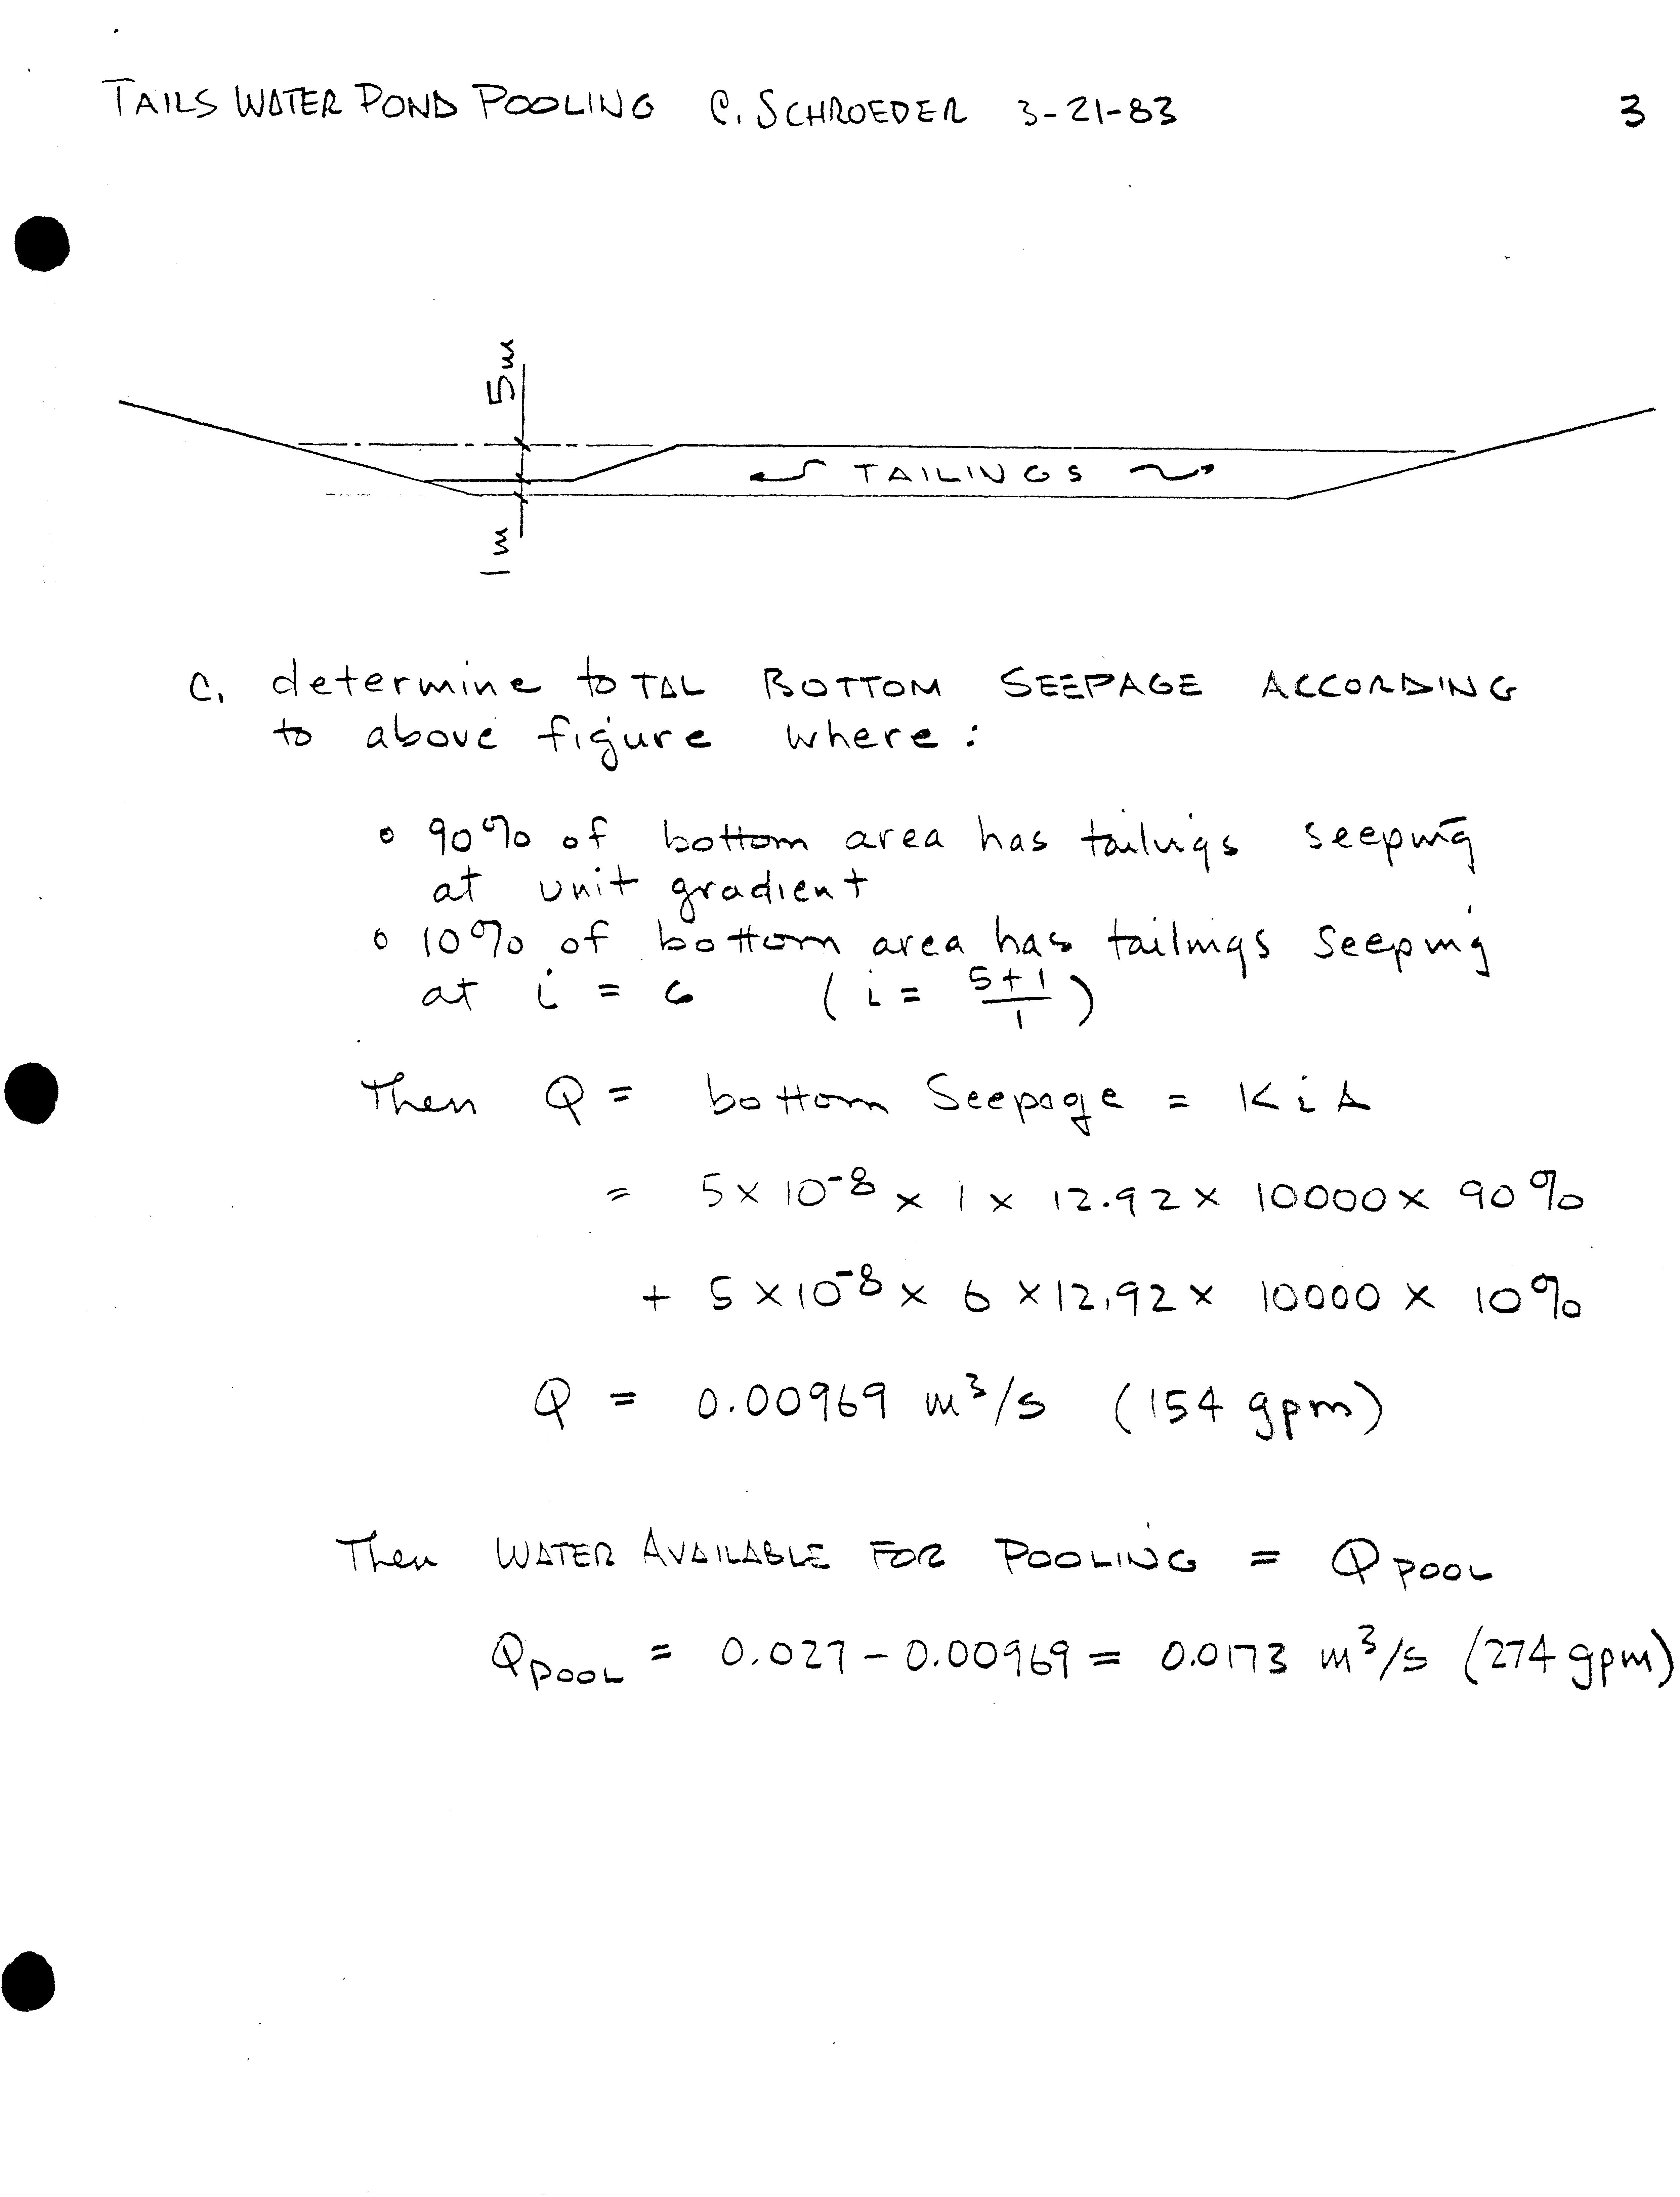 TAILS WATER POND POOLING C. SCHROEDER 3-21-83 3
5m
TAILINGS
1m
C. determine toTAL BOTTOM SEEPAGE ACCORDING
to above figure where:
o 90% of bottom area has tailings seeping
at unit gradient
o 10% of bottom area has tailings seeping
at i = 6 ( i = 5+1 / 1 )
Then Q = bottom Seepage = KiA
= 5 x 10⁻⁸ x 1 x 12.92 x 10000 x 90%
+ 5 x 10⁻⁸ x 6 x 12.92 x 10000 x 10%
Q = 0.00969 m³/s (154 gpm)
Then WATER AVAILABLE FOR POOLING = Q POOL
Q POOL = 0.027 - 0.00969 = 0.0173 m³/s (274 gpm)